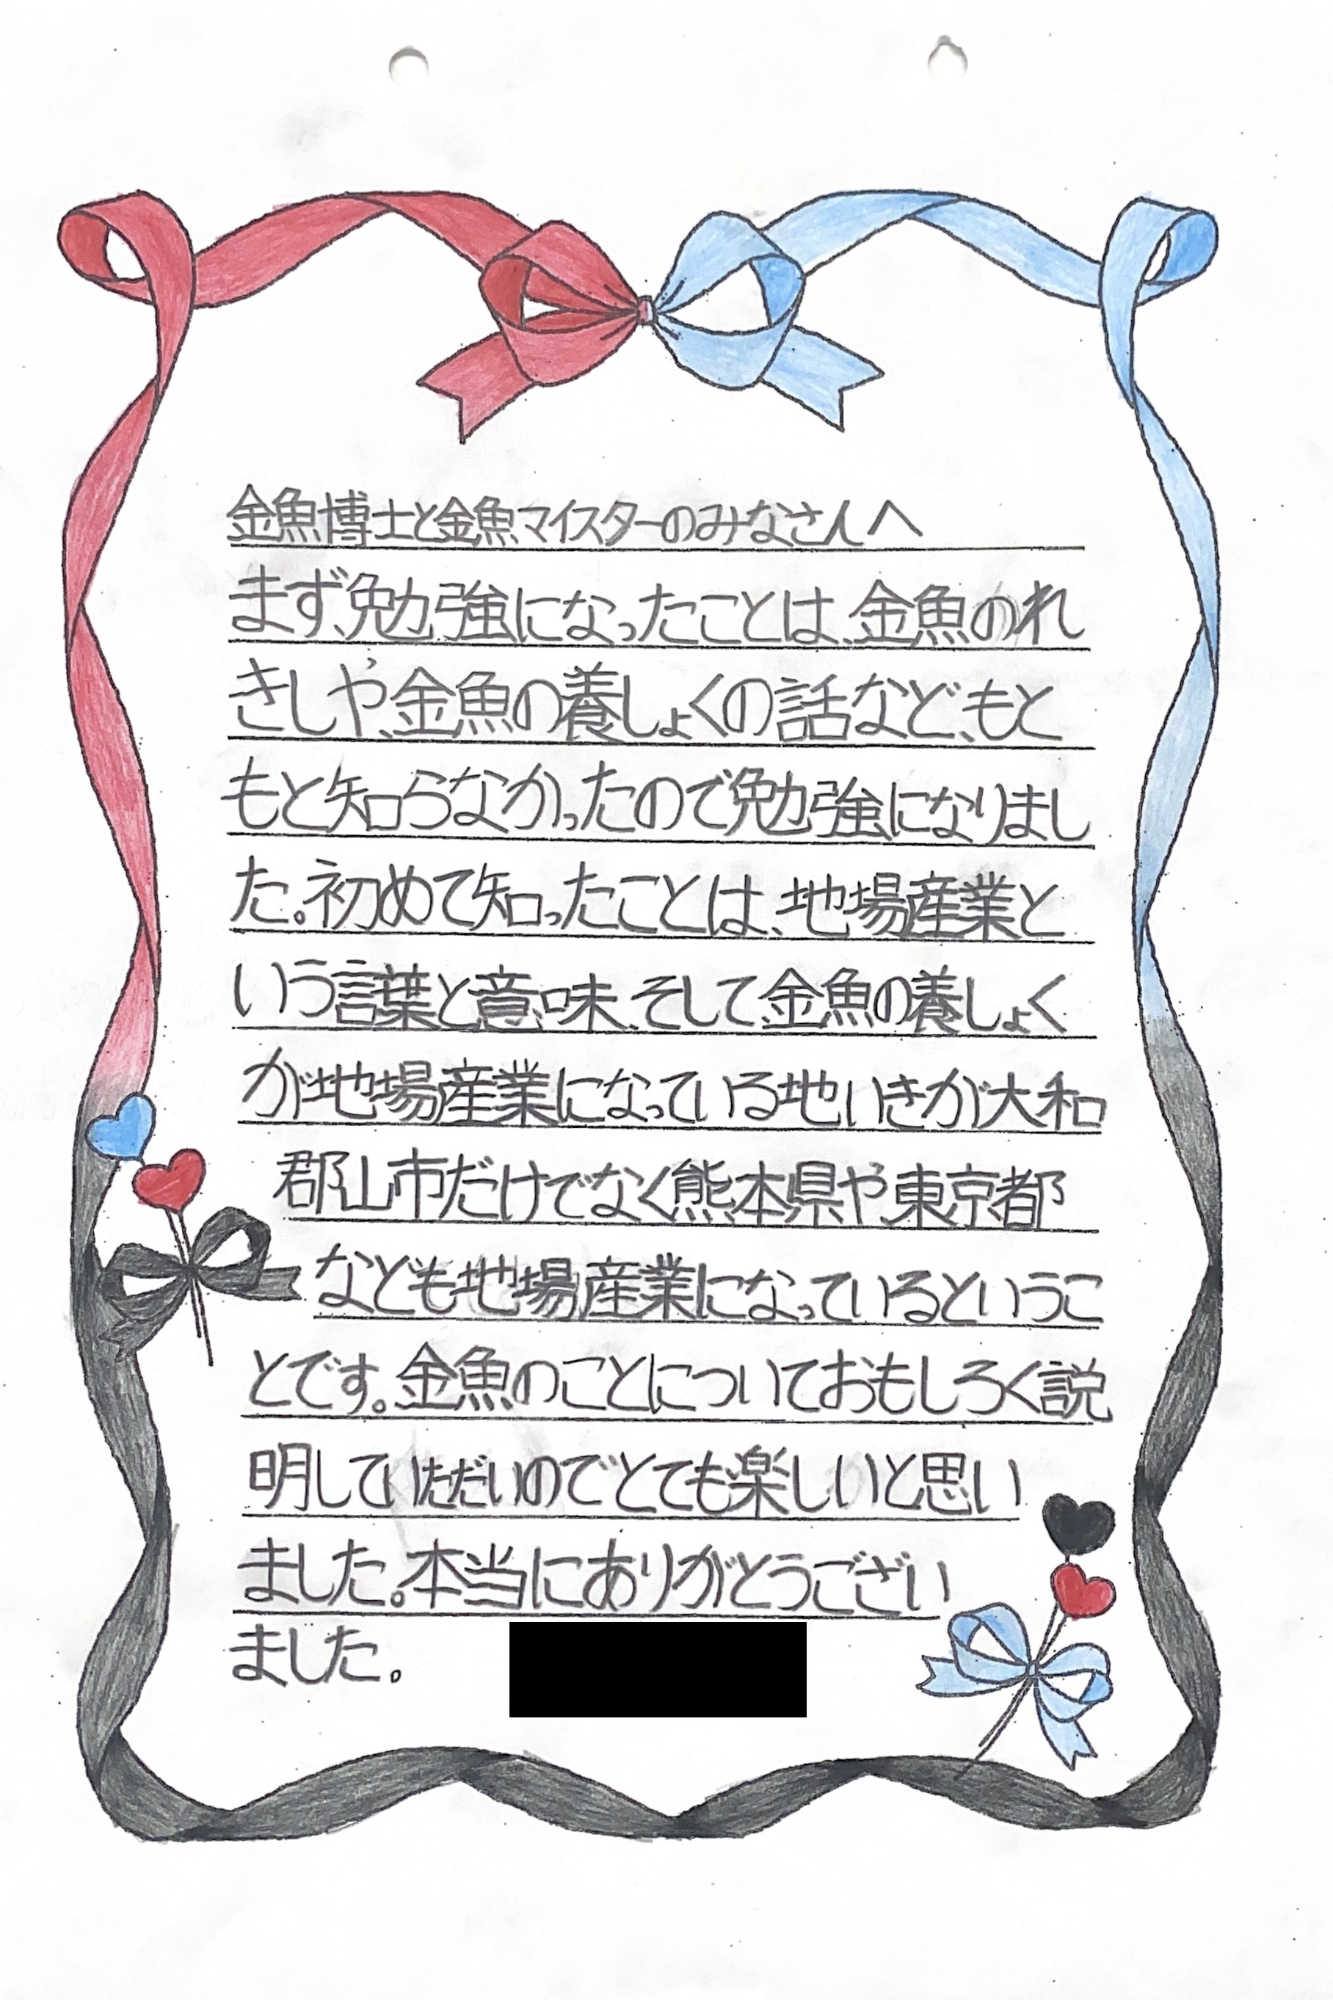 金魚博士と金魚マイスターのみなさんへ
まず、勉強になったことは、金魚のれ
きしや、金魚の養しょくの話など、もと
もと知らなかったので勉強になりまし
た。初めて知ったことは、地場産業と
いう言葉と意味、そして、金魚の養しょく
が地場産業になっている地いきが大和
郡山市だけでなく熊本県や東京都
なども地場産業になっているというこ
とです。金魚のことについておもしろく説
明していただいのでとても楽しいと思い
ました。本当にありがとうござい
ました。